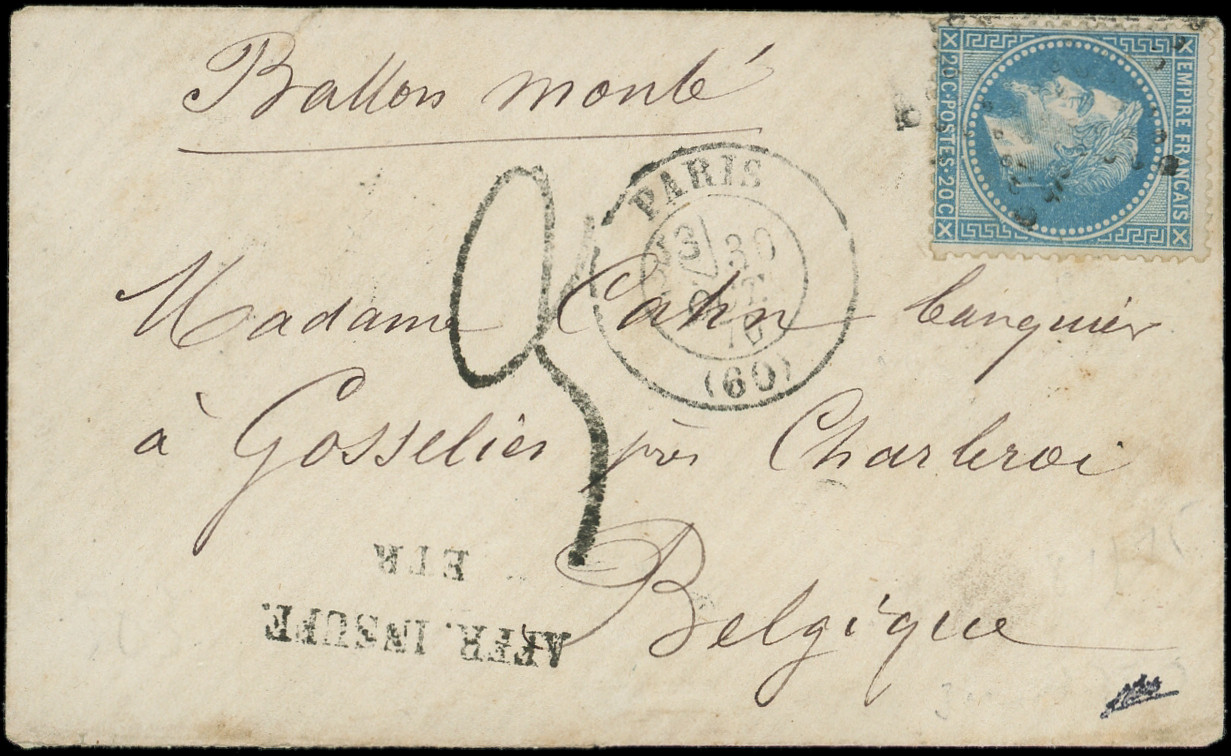 Ballon monté
EMPIRE FRANÇAIS
20 C · POSTES · 20 C
PARIS
30
OCT.
70
(60)
Madame Cahn banquier
à Gosselies près Charleroi
Belgique
AFFR. INSUFF.
ETR